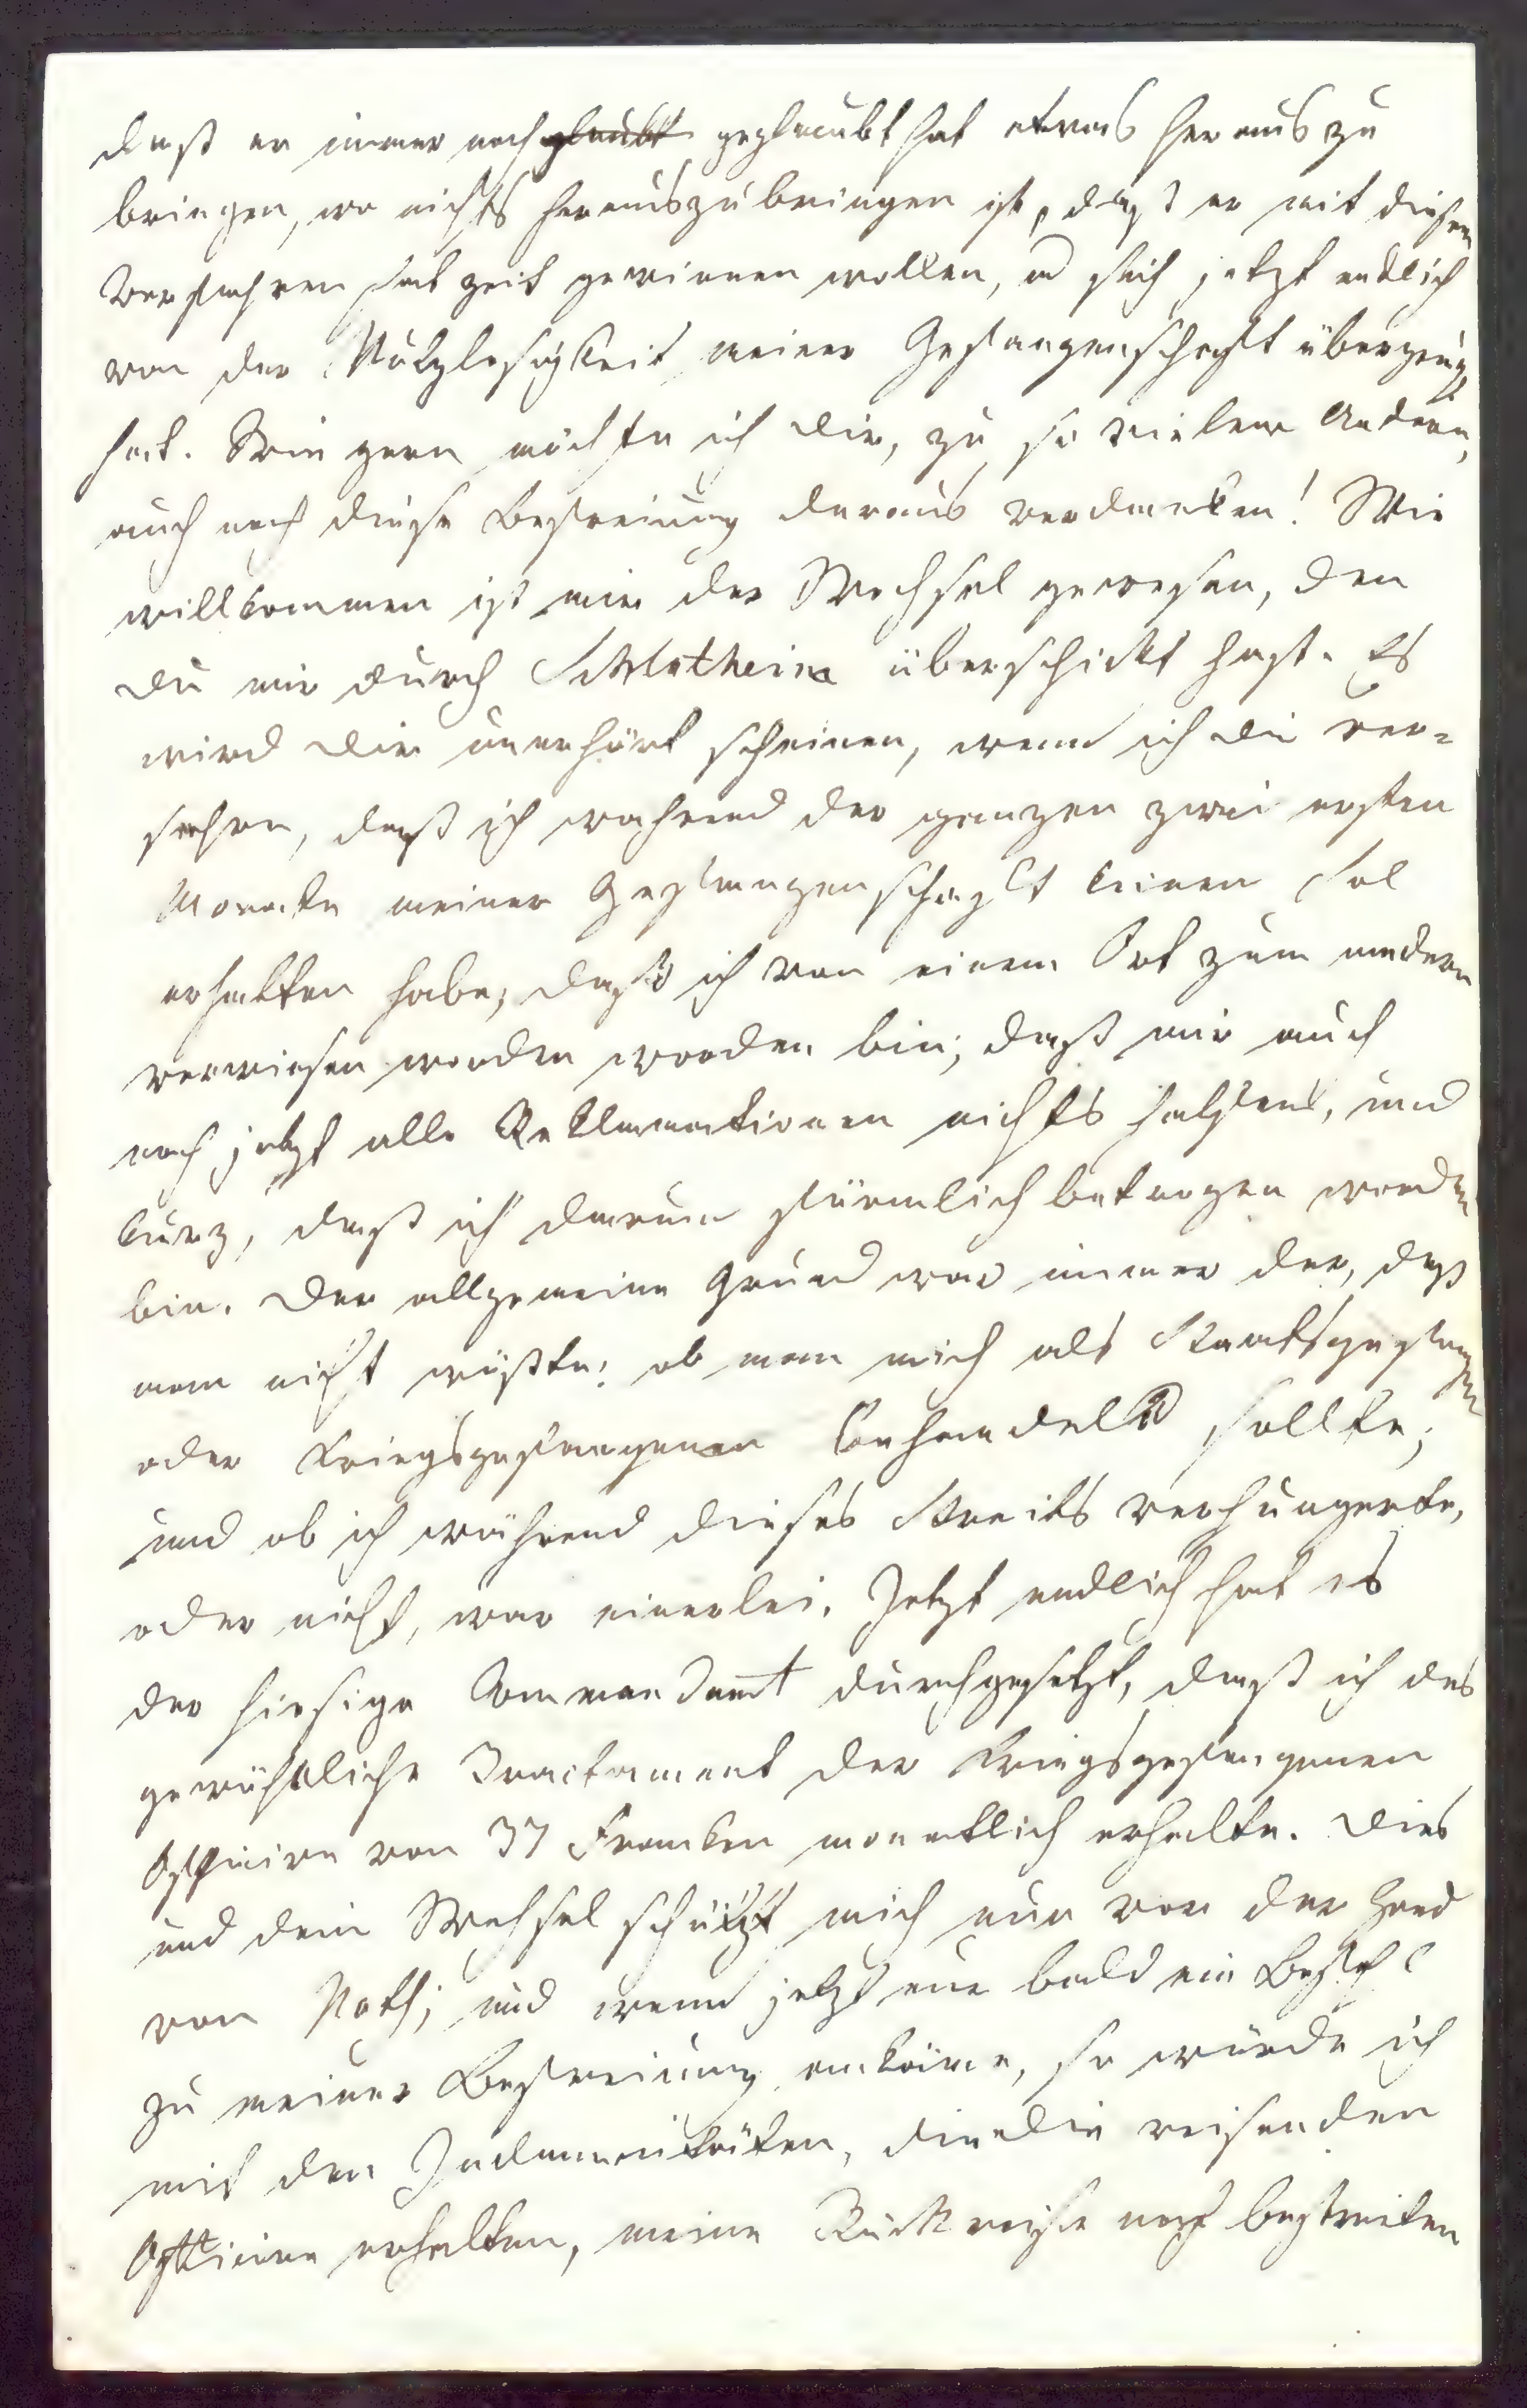 daß er immer noch glaubt geglaubt hat etwas heraus zu
bringen, wo nichts herauszubringen ist, daß er mit diesem
Verfahren hat Zeit gewinnen wollen, u sich jetzt endlich
von der Nutzlosigkeit meiner Gefangenschaft überzeugt
hat. Wie gern möchte ich dir, zu so vielem Andern,
auch noch diese Befreiung daraus verdanken! Wie
willkommen ist mir der Wechsel gewesen, den
du mir durch Schlotheim überschickt hast. Es
wird dir unerhört scheinen, wenn ich dir ver-
sichre, daß ich während der ganzen zwei ersten
Monate meiner Gefangenschaft keinen Sol
erhalten habe; daß ich von einem Ort zum andern
verwiesen worden worden bin; daß mir auch
noch jetzt alle Reklamationen nichts helfen, und
kurz, daß ich darum förmlich betrogen worden
bin. Der allgemeine Grund war immer der, daß
man nicht wüßte, ob man mich als Staatsgefangen
oder Kriegsgefangenen behandeln sollte;
und ob ich während dieses Streits verhungerte,
oder nicht, war einerlei. Jetzt endlich hat es
der hiesige Commendant durchgesetzt, daß ich das
gewöhnliche Tractament der kriegsgefangenen
Officire von 37 Franken monatlich erhalte. Dies
und dein Wechsel schützt mich nun vor der Hand
vor Noth; und wenn jetzt nur bald ein Befehl
zu meiner Befreiung ankäme, so würde ich
mit den Indemnitäten, die die reisenden
Officire erhalten, meine Rückreise noch bestreiten